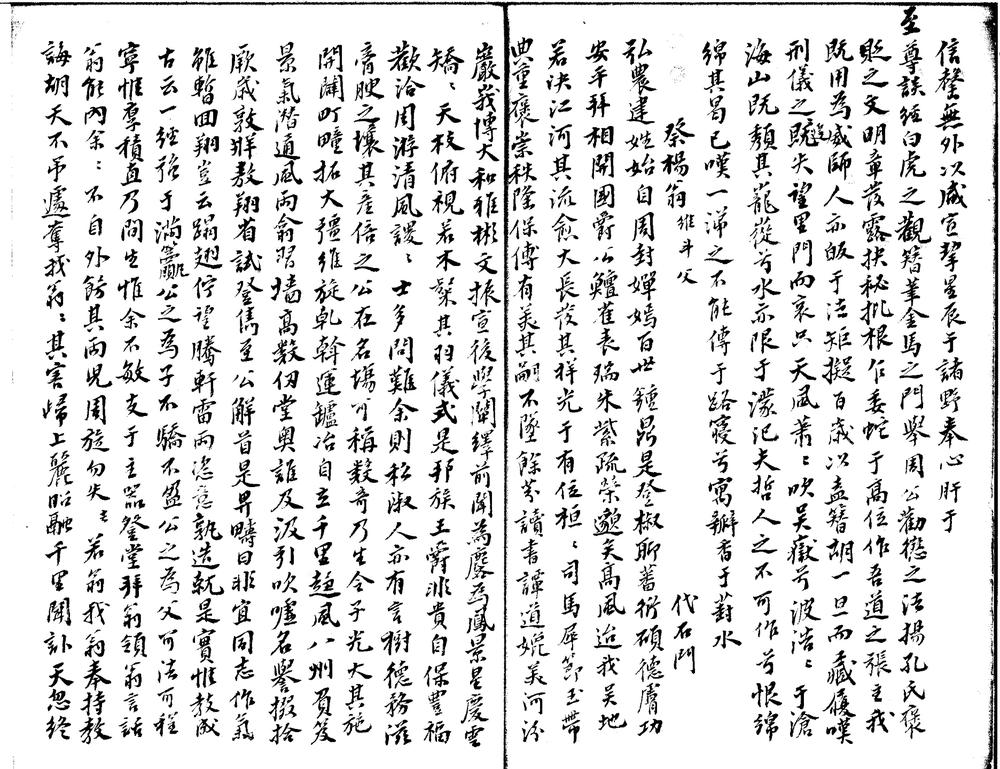 信馨無外以咸宣挈星辰于諸野奉心肝于
至尊談經白虎之觀簪筆金馬之門舉周公勸懲之法揚孔氏褒
貶之文明章發露抉秘抗根乍委蛇于高位作吾道之張主我
既用為盛師人亦皈于法矩擬百歲以盍簪胡一旦而藏履嘆
刑儀之既失望里門而哀只天風蕭〻吹吳嶽兮波浩〻于滄
海山既頹其蘢蓯兮水亦限于濛汜夫哲人之不可作兮恨綿
綿其曷已嘆一涕之不能傳于路寢兮寓瓣香于葑水
祭楊翁維斗父 代石門
弘農建姓始自周封嬋嫣百世鍾昴是登椒聊蕃衍碩德膚功
安平拜相開國爵公鱣雀表瑞朱紫疏榮邈矣高風迨我吳地
若决江河其流愈大長發其祥光于有位桓〻司馬犀節玉帶
典重褒崇秩隆保傅有美其嗣不墜餘芬讀書譚道媲美河汾
巖峩博大和雅彬文振宣後學闡繹前聞為麐為鳳景星慶雲
矯〻天枝俯視若木槩其羽儀式是邦族王爵非貴自保豐福
歡洽周游清風謖〻士多問難余則私淑人亦有言樹德務滋
膏腴之壤其產倍之公在名場可稱數奇乃生令子光大其施
開闢町疃拓大疆維旋乾斡運鑪冶自立千里趨風八州負笈
景氣潛通風雨翕習墻高數仞堂奧誰及汲引吹噓名譽掇拾
厥歲敦牂敖翔省試登雋至公解首是畀疇曰非宜同志作氣
雖暫回翔豈云蹋翅佇望騰軒雷雨恣意孰造就是實惟教成
古云一經強于滿籯公之為子不驕不盈公之為父可法可程
寧惟羣積直乃問生惟余不敏支于主器登堂拜翁領翁言話
翁能內余〻不自外飭其兩兒周旋勿失〻若翁我翁奉持教
誨胡天不吊遽奪我翁〻其害歸上麗昭融千里聞訃天忽終